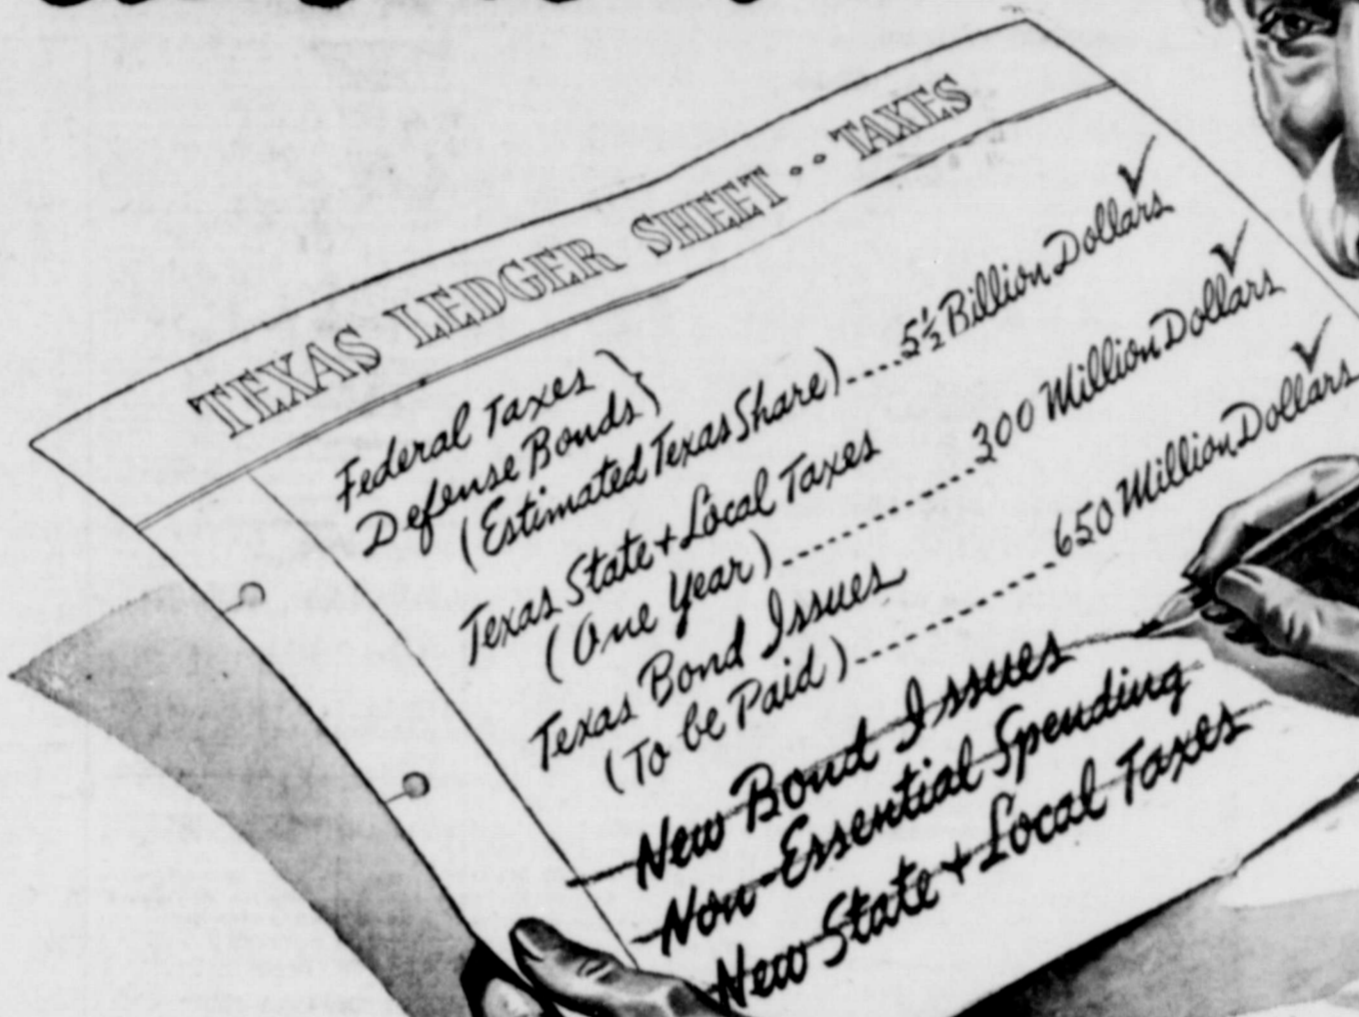 TEXAS LEDGER SHEET -- TAXES
Federal Taxes
Defense Bonds
(Estimated Texas Share)----5½ Billion Dollars ✓
Texas State & Local Taxes
(One Year)------------300 Million Dollars ✓
Texas Bond Issues
(To be Paid)------------650 Million Dollars ✓
New Bond Issues
Non-Essential Spending
New State & Local Taxes